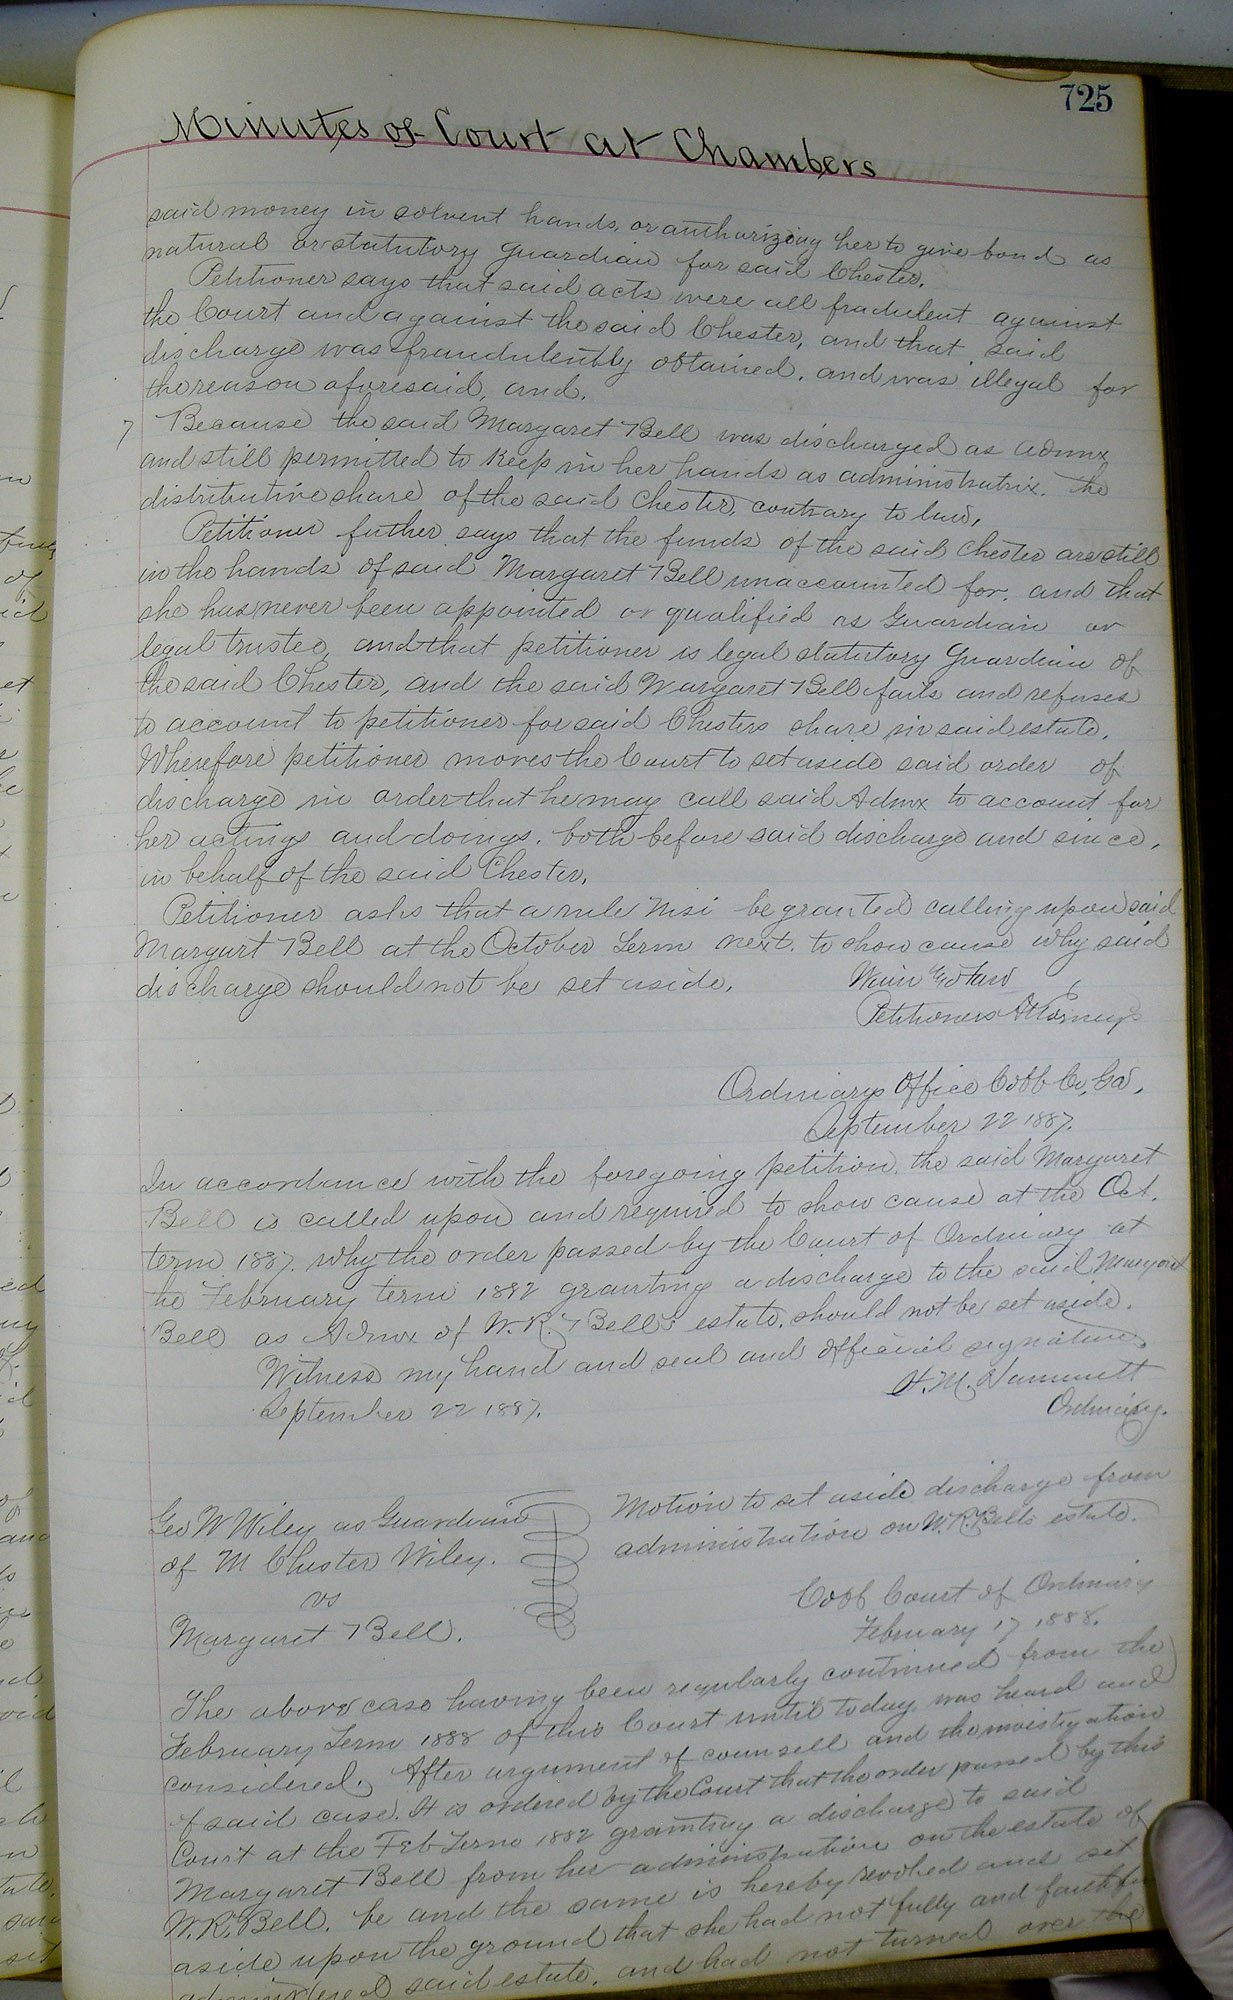 725
Minutes of Court at Chambers
said money in solvent hands, or authorizing her to give bond as
natural or statutory guardian for said Chester.
Petitioner says that said acts were all fradulent against
the Court and against the said Chester, and that said
discharge was fraudulently obtained, and was illegal for
the reason aforesaid, and.
7 Because the said Margaret Bell was discharged as admx
and still permitted to keep in her hands as administratrix. the
distributive share of the said Chester, contrary to law,
Petitioner futher says that the funds of the said Chester are still
in the hands of said Margaret Bell unaccounted for, and that
she has never been appointed or qualified as Guardian or
legal trustee, and that petitioner is legal statutory Guardian of
the said Chester, and the said Margaret Bell fails and refuses
to account to petitioner for said Chesters share in said estate.
Wherefore petitioner moves the Court to set aside said order of
discharge in order that he may call said Admx to account for
her actings and doings, both before said discharge and since,
in behalf of the said Chester,
Petitioner asks that a rule nisi be granted calling upon said
Margart Bell at the October Term next. to show cause why said
discharge should not be set aside.
Petitioners Attorneys
Ordinarys Office Cobb Co, Ga,
September 22 1887.
In accordance with the foregoing petition, the said Margaret
Bell is called upon and required to show cause at the Oct.
term 1887, why the order passed by the Court of Ordinary at
the February term 1882 granting a discharge to the said Margaret
Bell as Admx of W. R. Bell's estate, should not be set aside.
Witness my hand and seal and official signature,
September 22 1887.
H. M. Hammett
Ordinary.
Geo W Wiley as Guardian
of M Chester Wiley.
vs
Margaret Bell.
Motion to set aside discharge from
administration on W. R. Bells estate.
Cobb Court of Ordinary
February 17 1888.
The above case having been regularly continued from the
February Term 1888 of this Court until today, was heard and
considered. After argument of counsell and the investigation
of said case. It is ordered by the Court that the order passed by this
Court at the Feb Term 1882 granting a discharge to said
Margaret Bell from her administration on the estate of
W. R. Bell, be and the same is hereby revoked and set
aside upon the ground that she had not fully and
administered said estate, and had not turned over the